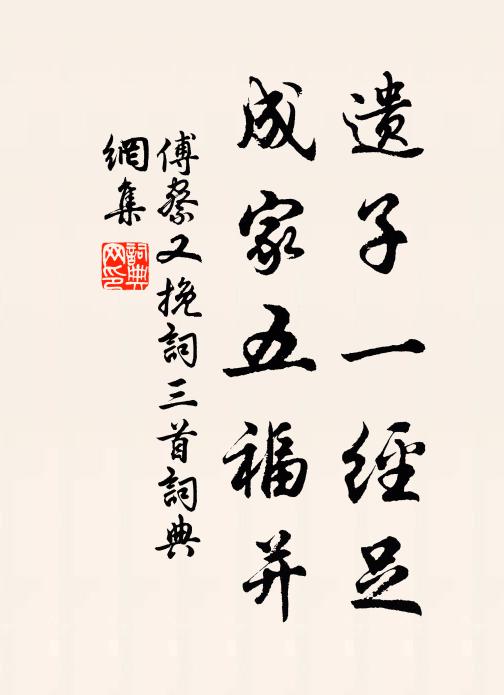 遗子一經足
成家五福并
傅察又挽詞三首詞典
網集
詞典
网印